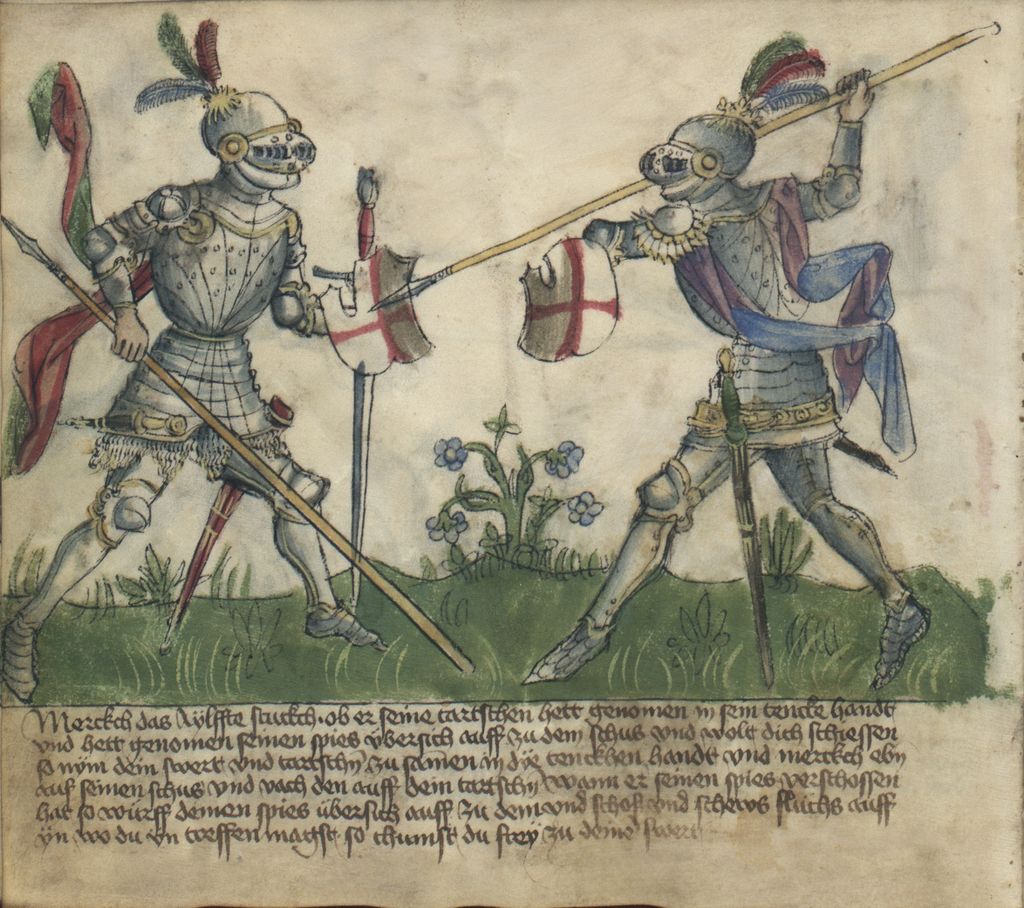 Merckch das Aÿlffte stuckch · ob er seine tartschen hett genomen in sein tencke handt
vnd hett genomen seinen spies vbersich auff zu dem schus vnd wolt dich schiessen
so nÿm dein swert vnd tartschn zu samen in dÿe tenckhen handt vnd merckch ebn
auf seinen schus vnd vach den auff dein tartschn wann er seinen spies verschossen
hat so würff deinen spies übersich auff zu dem vnd schos vnd schews fluchs auff
ÿn wo du ÿn treffen magst so chumst du freÿ zu deine swert